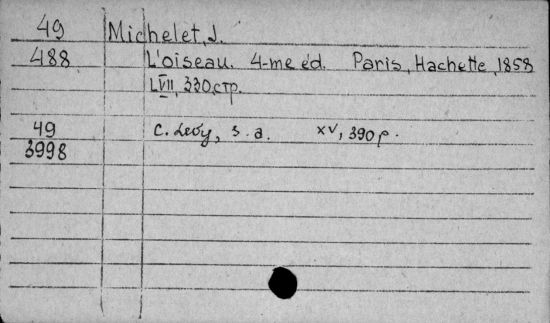 49 Michelet, J.
488 L'oiseau. 4-me éd. Paris, Hachette, 1858
LVII, 330 стр.
49 C. Levy, s. a. XV, 390 p.
3998